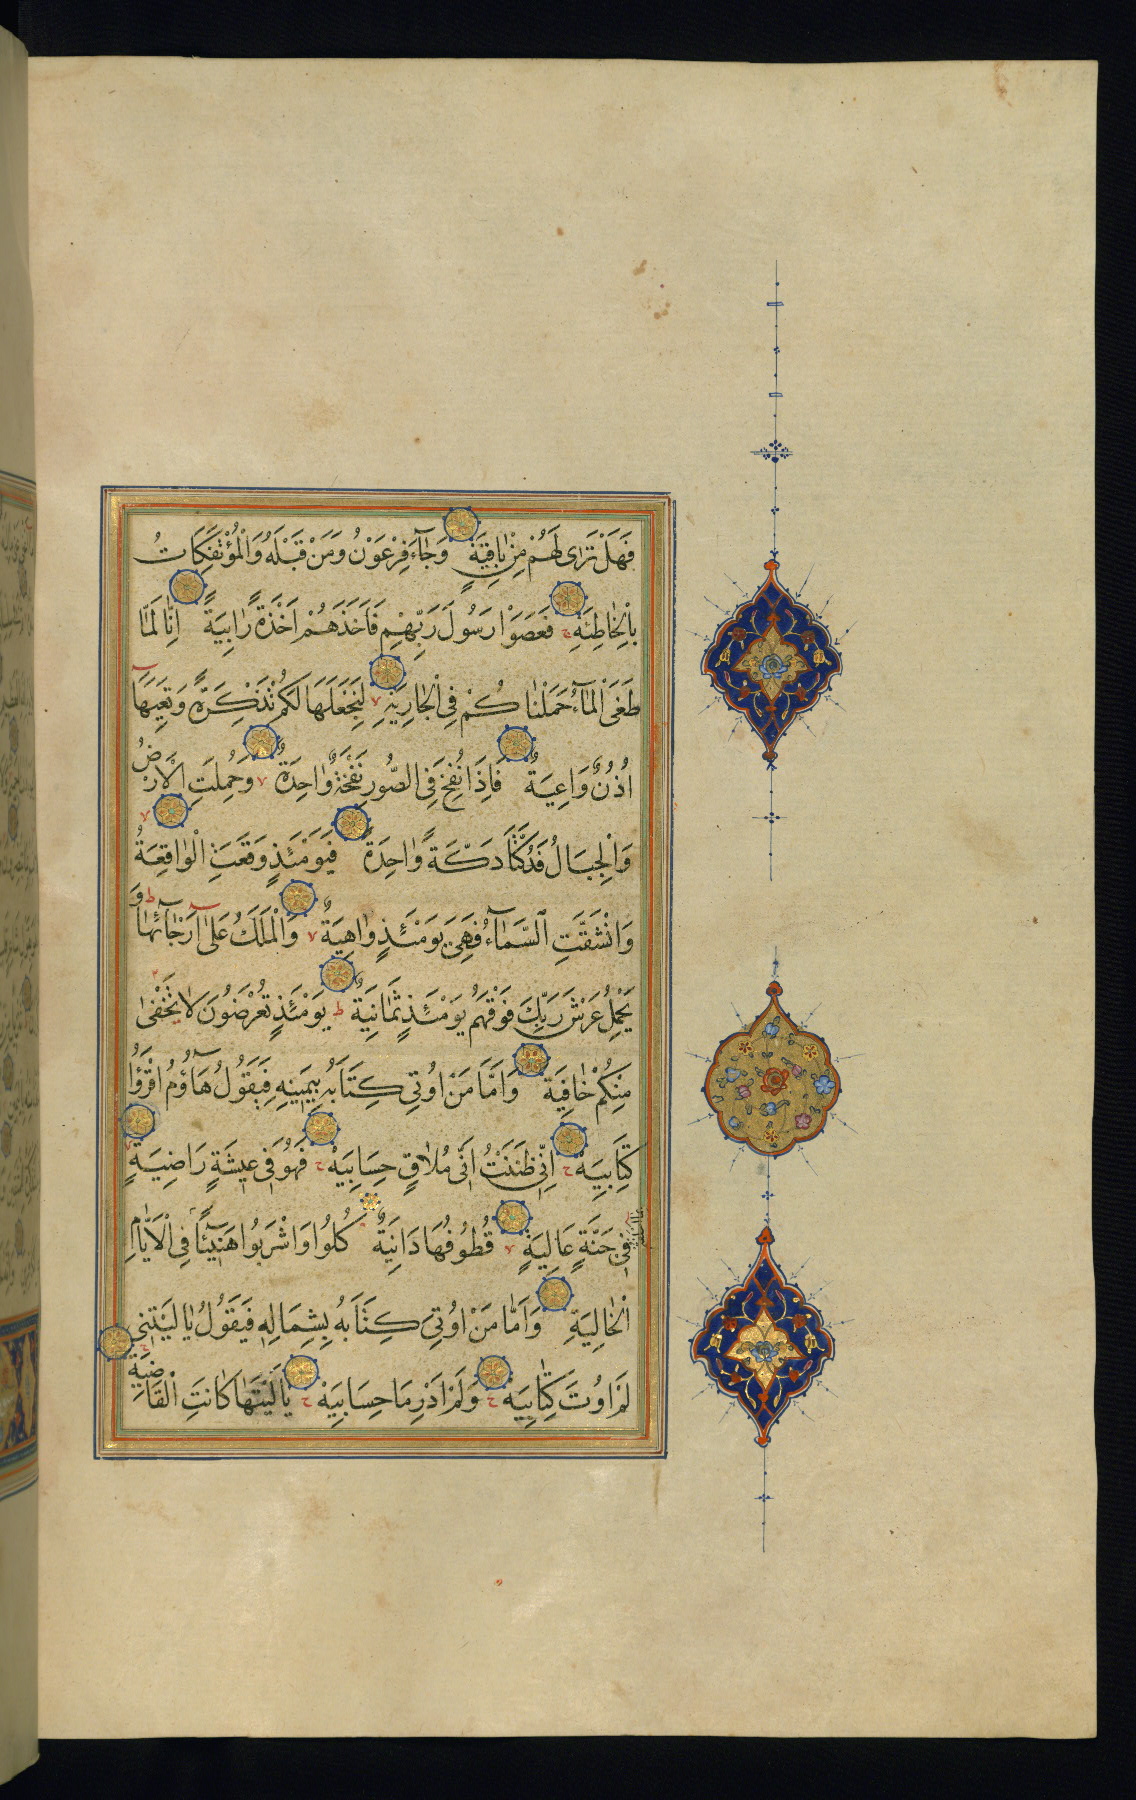 فَهَلْ تَرٰى لَهُمْ مِنْ بَاقِيَةٍ وَجَآءَ فِرْعَوْنُ وَمَنْ قَبْلَهُ وَالْمُؤْتَفِكَاتُ
بِالْخَاطِئَةِ ج فَعَصَوْا رَسُولَ رَبِّهِمْ فَاَخَذَهُمْ اَخْذَةً رَابِيَةً اِنَّا لَمَّا
طَغَى الْمَآءُ حَمَلْنَاكُمْ فِي الْجَارِيَةِ لا لِنَجْعَلَهَا لَكُمْ تَذْكِرَةً وَتَعِيَهَآ
اُذُنٌ وَاعِيَةٌ فَاِذَا نُفِخَ فِي الصُّورِ نَفْخَةٌ وَاحِدَةٌ لا وَحُمِلَتِ الْاَرْضُ
وَالْجِبَالُ فَدُكَّتَا دَكَّةً وَاحِدَةً لا فَيَوْمَئِذٍ وَقَعَتِ الْوَاقِعَةُ
وَانْشَقَّتِ السَّمَآءُ فَهِيَ يَوْمَئِذٍ وَاهِيَةٌ لا وَالْمَلَكُ عَلٰٓى اَرْجَآئِهَا ط وَ
يَحْمِلُ عَرْشَ رَبِّكَ فَوْقَهُمْ يَوْمَئِذٍ ثَمَانِيَةٌ ط يَوْمَئِذٍ تُعْرَضُونَ لَا تَخْفٰى
مِنْكُمْ خَافِيَةٌ وَاَمَّا مَنْ اُوتِيَ كِتَابَهُ بِيَمِينِهِ فَيَقُولُ هَآؤُمُ اقْرَؤُا
كِتَابِيَهْ ج اِنِّي ظَنَنْتُ اَنِّي مُلَاقٍ حِسَابِيَهْ ج فَهُوَ فِي عِيشَةٍ رَاضِيَةٍ
فِي جَنَّةٍ عَالِيَةٍ لا قُطُوفُهَا دَانِيَةٌ كُلُوا وَاشْرَبُوا هَنِيٓئًا فِي الْاَيَّامِ
الْخَالِيَةِ وَاَمَّا مَنْ اُوتِيَ كِتَابَهُ بِشِمَالِهِ فَيَقُولُ يَا لَيْتَنِي
لَمْ اُوتَ كِتَابِيَهْ ج وَلَمْ اَدْرِ مَا حِسَابِيَهْ ج يَا لَيْتَهَا كَانَتِ الْقَاضِيَةَ ج